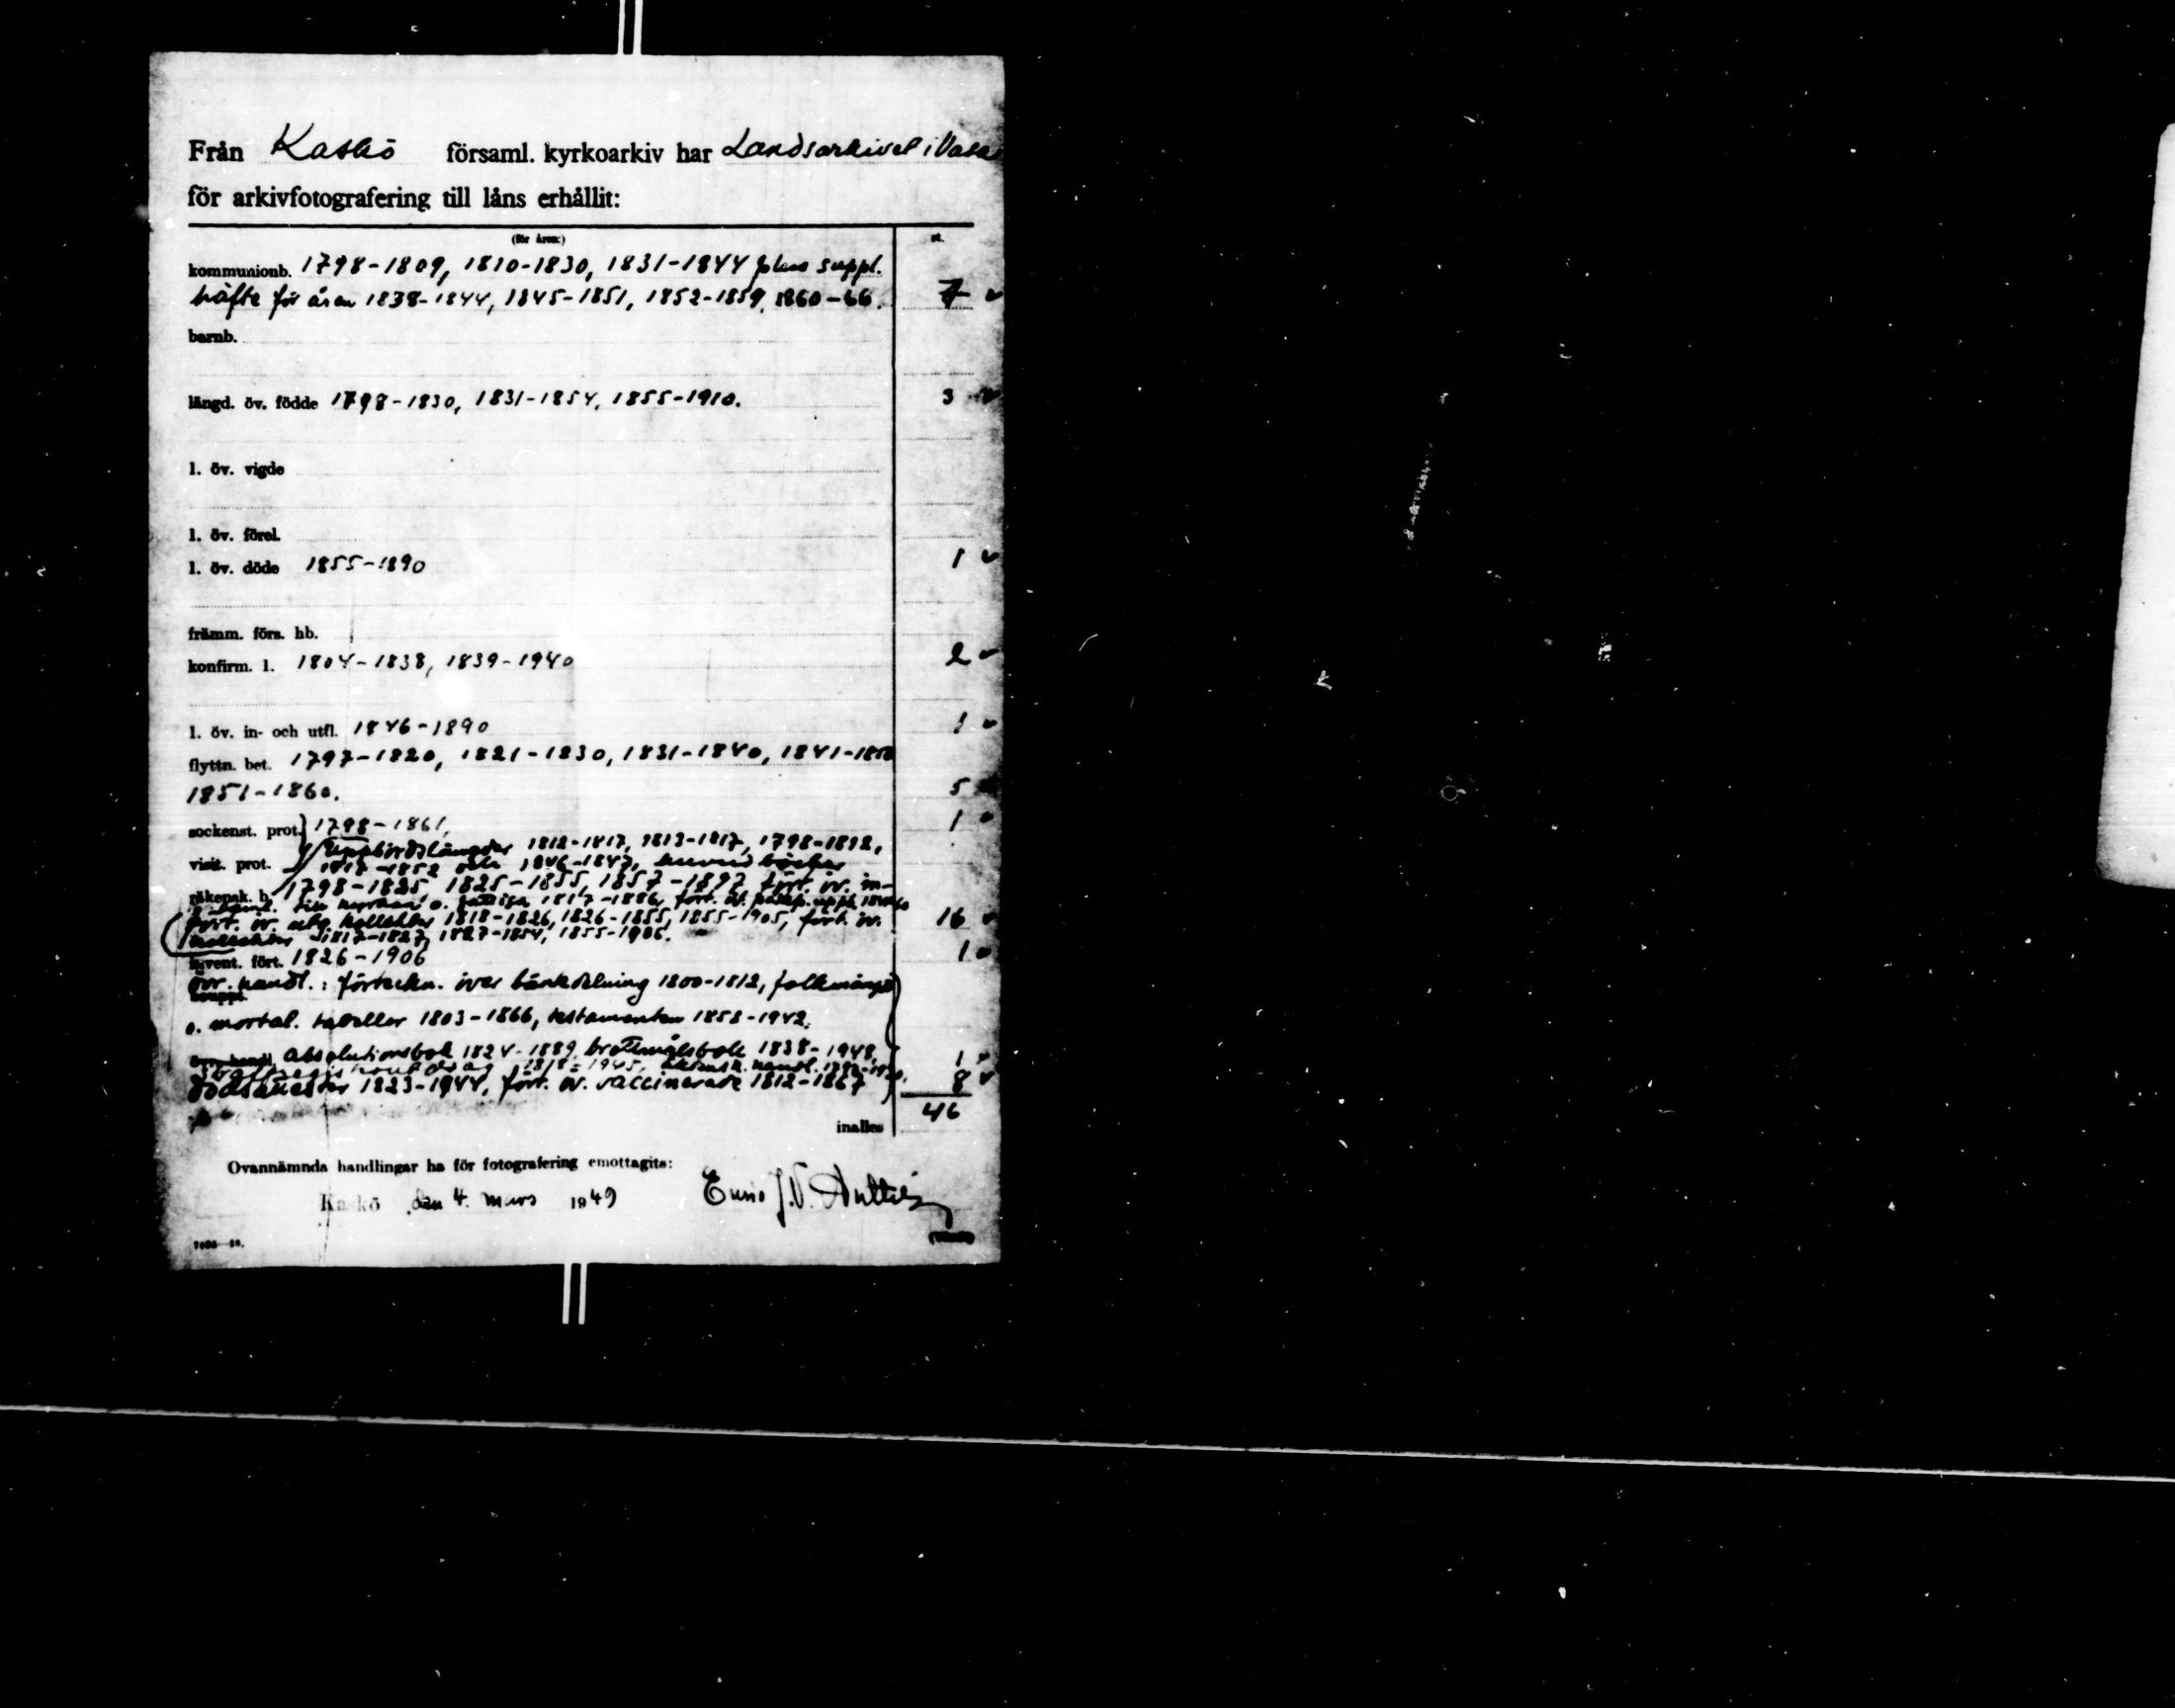 Från Kaskö församl. kyrkoarkiv har Landsarkivet i Vasa
för arkivfotografering till låns erhållit:
(för åren:) st.
kommunionb. 1798-1809, 1810-1830, 1831-1844 plus suppl.
häfte för åren 1838-1844, 1845-1851, 1852-1859, 1860-66. 7
barnb.
längd. öv. födde 1798-1830, 1831-1854, 1855-1910. 3
l. öv. vigde
l. öv. förel.
l. öv. döde 1855-1890 1
främm. förs. hb.
konfirm. l. 1804-1838, 1839-1940 2
l. öv. in- och utfl. 1846-1890 1
flyttn. bet. 1797-1820, 1821-1830, 1831-1840, 1841-1850
1851-1860. 5
sockenst. prot. 1798-1861, 1
Uppbördslängder 1812-1817, 1813-1817, 1798-1812,
visit. prot. 1817-1852 och 1846-1847,
räkensk. b. 1798-1825, 1825-1855, 1857-1897, fört. öv. in-
till kyrkan o. fattiga 1817-1886, fört. öv.
fört. öv. kollekter 1818-1826, 1826-1855, 1855-1905, fört. öv. 16
kollekter 1817-1827, 1827-1854, 1855-1906.
invent. fört. 1826-1906 1
övr. handl.: förteckn. över bänkdelning 1800-1812, folkmängd
o. mortal. tabeller 1803-1866, testamenten 1858-1942.
absolutionsbok 1824-1889, brottmålsbok 1838-1948, 1
1818-1945, handl. 8
dödsattester 1823-1944, fört. öv. vaccinerade 1812-1867
inalles 46
Ovannämnda handlingar ha för fotografering emottagits:
Kaskö den 4. mars 1949